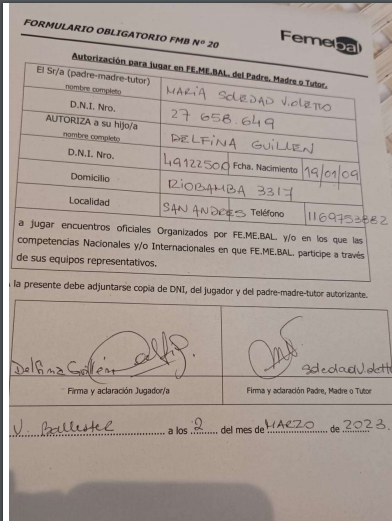 FORMULARIO OBLIGATORIO FMB Nº 20
Femebal
Autorización para jugar en FE.ME.BAL. del Padre, Madre o Tutor.
El Sr/a (padre-madre-tutor) nombre completo MARIA SOLEDAD VIOLETTO
D.N.I. Nro. 27 658.649
AUTORIZA a su hijo/a nombre completo DELFINA GUILLEN
D.N.I. Nro. 49122500 Fcha. Nacimiento 19/01/09
Domicilio RIOBAMBA 3317
Localidad SAN ANDRES Teléfono 1169753882
a jugar encuentros oficiales Organizados por FE.ME.BAL. y/o en los que las
competencias Nacionales y/o Internacionales en que FE.ME.BAL. participe a través
de sus equipos representativos.
la presente debe adjuntarse copia de DNI, del jugador y del padre-madre-tutor autorizante.
Delfina Guillén
Firma y aclaración Jugador/a
Firma y aclaración Padre, Madre o Tutor
V. Ballester a los 2 del mes de MARZO de 2023.